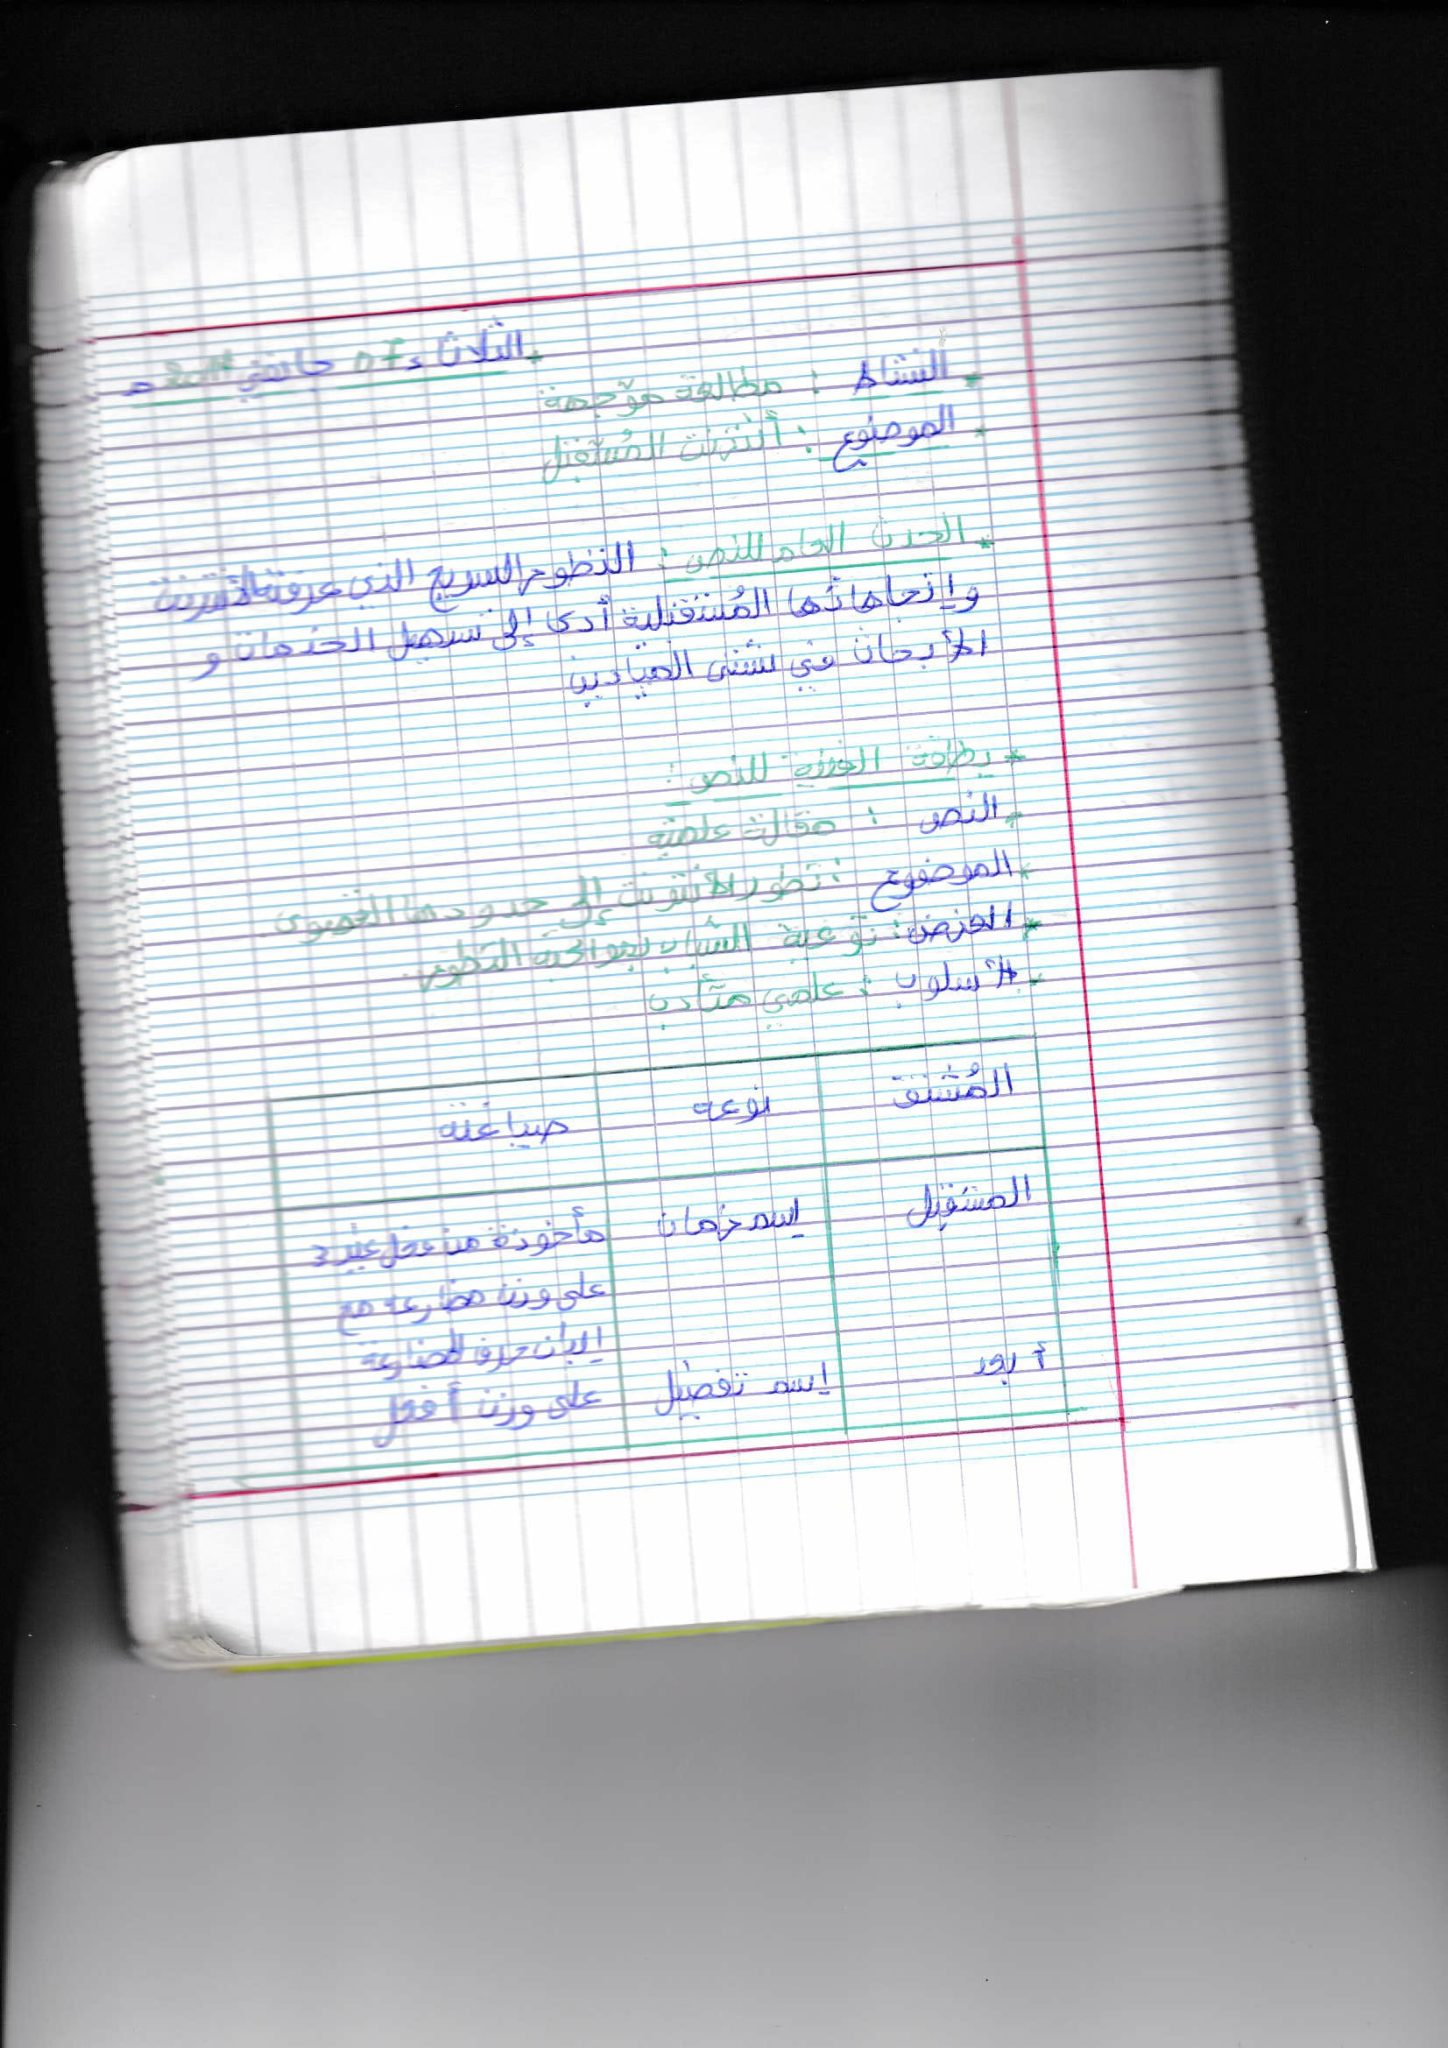 الثلاثاء 07 جانفي
النشاط : مطالعة موّجهة
الموضوع : أنترنت المُستقبل
الحدث العام للنص : التطور السريع الذي عرفته الأنترنت
وإتجاهاتها المُستقبلية أدى إلى تسهيل الخدمات و
الأبحاث في شتى الميادين
بطاقة الفنية للنص :
النص : مقالة علمية
الموضوع : تطور الأنترنت إلى حدودها القصوى
الغرض : توعية الشباب بمواكبة التطور
الأسلوب : علمي متأدب
المُشتق نوعه صياغته
المستقبل إسم زمان مأخوذة من فعل
على وزن مضارعه مع
حرف المضارعة
أبعد إسم تفضيل على وزن أفعل